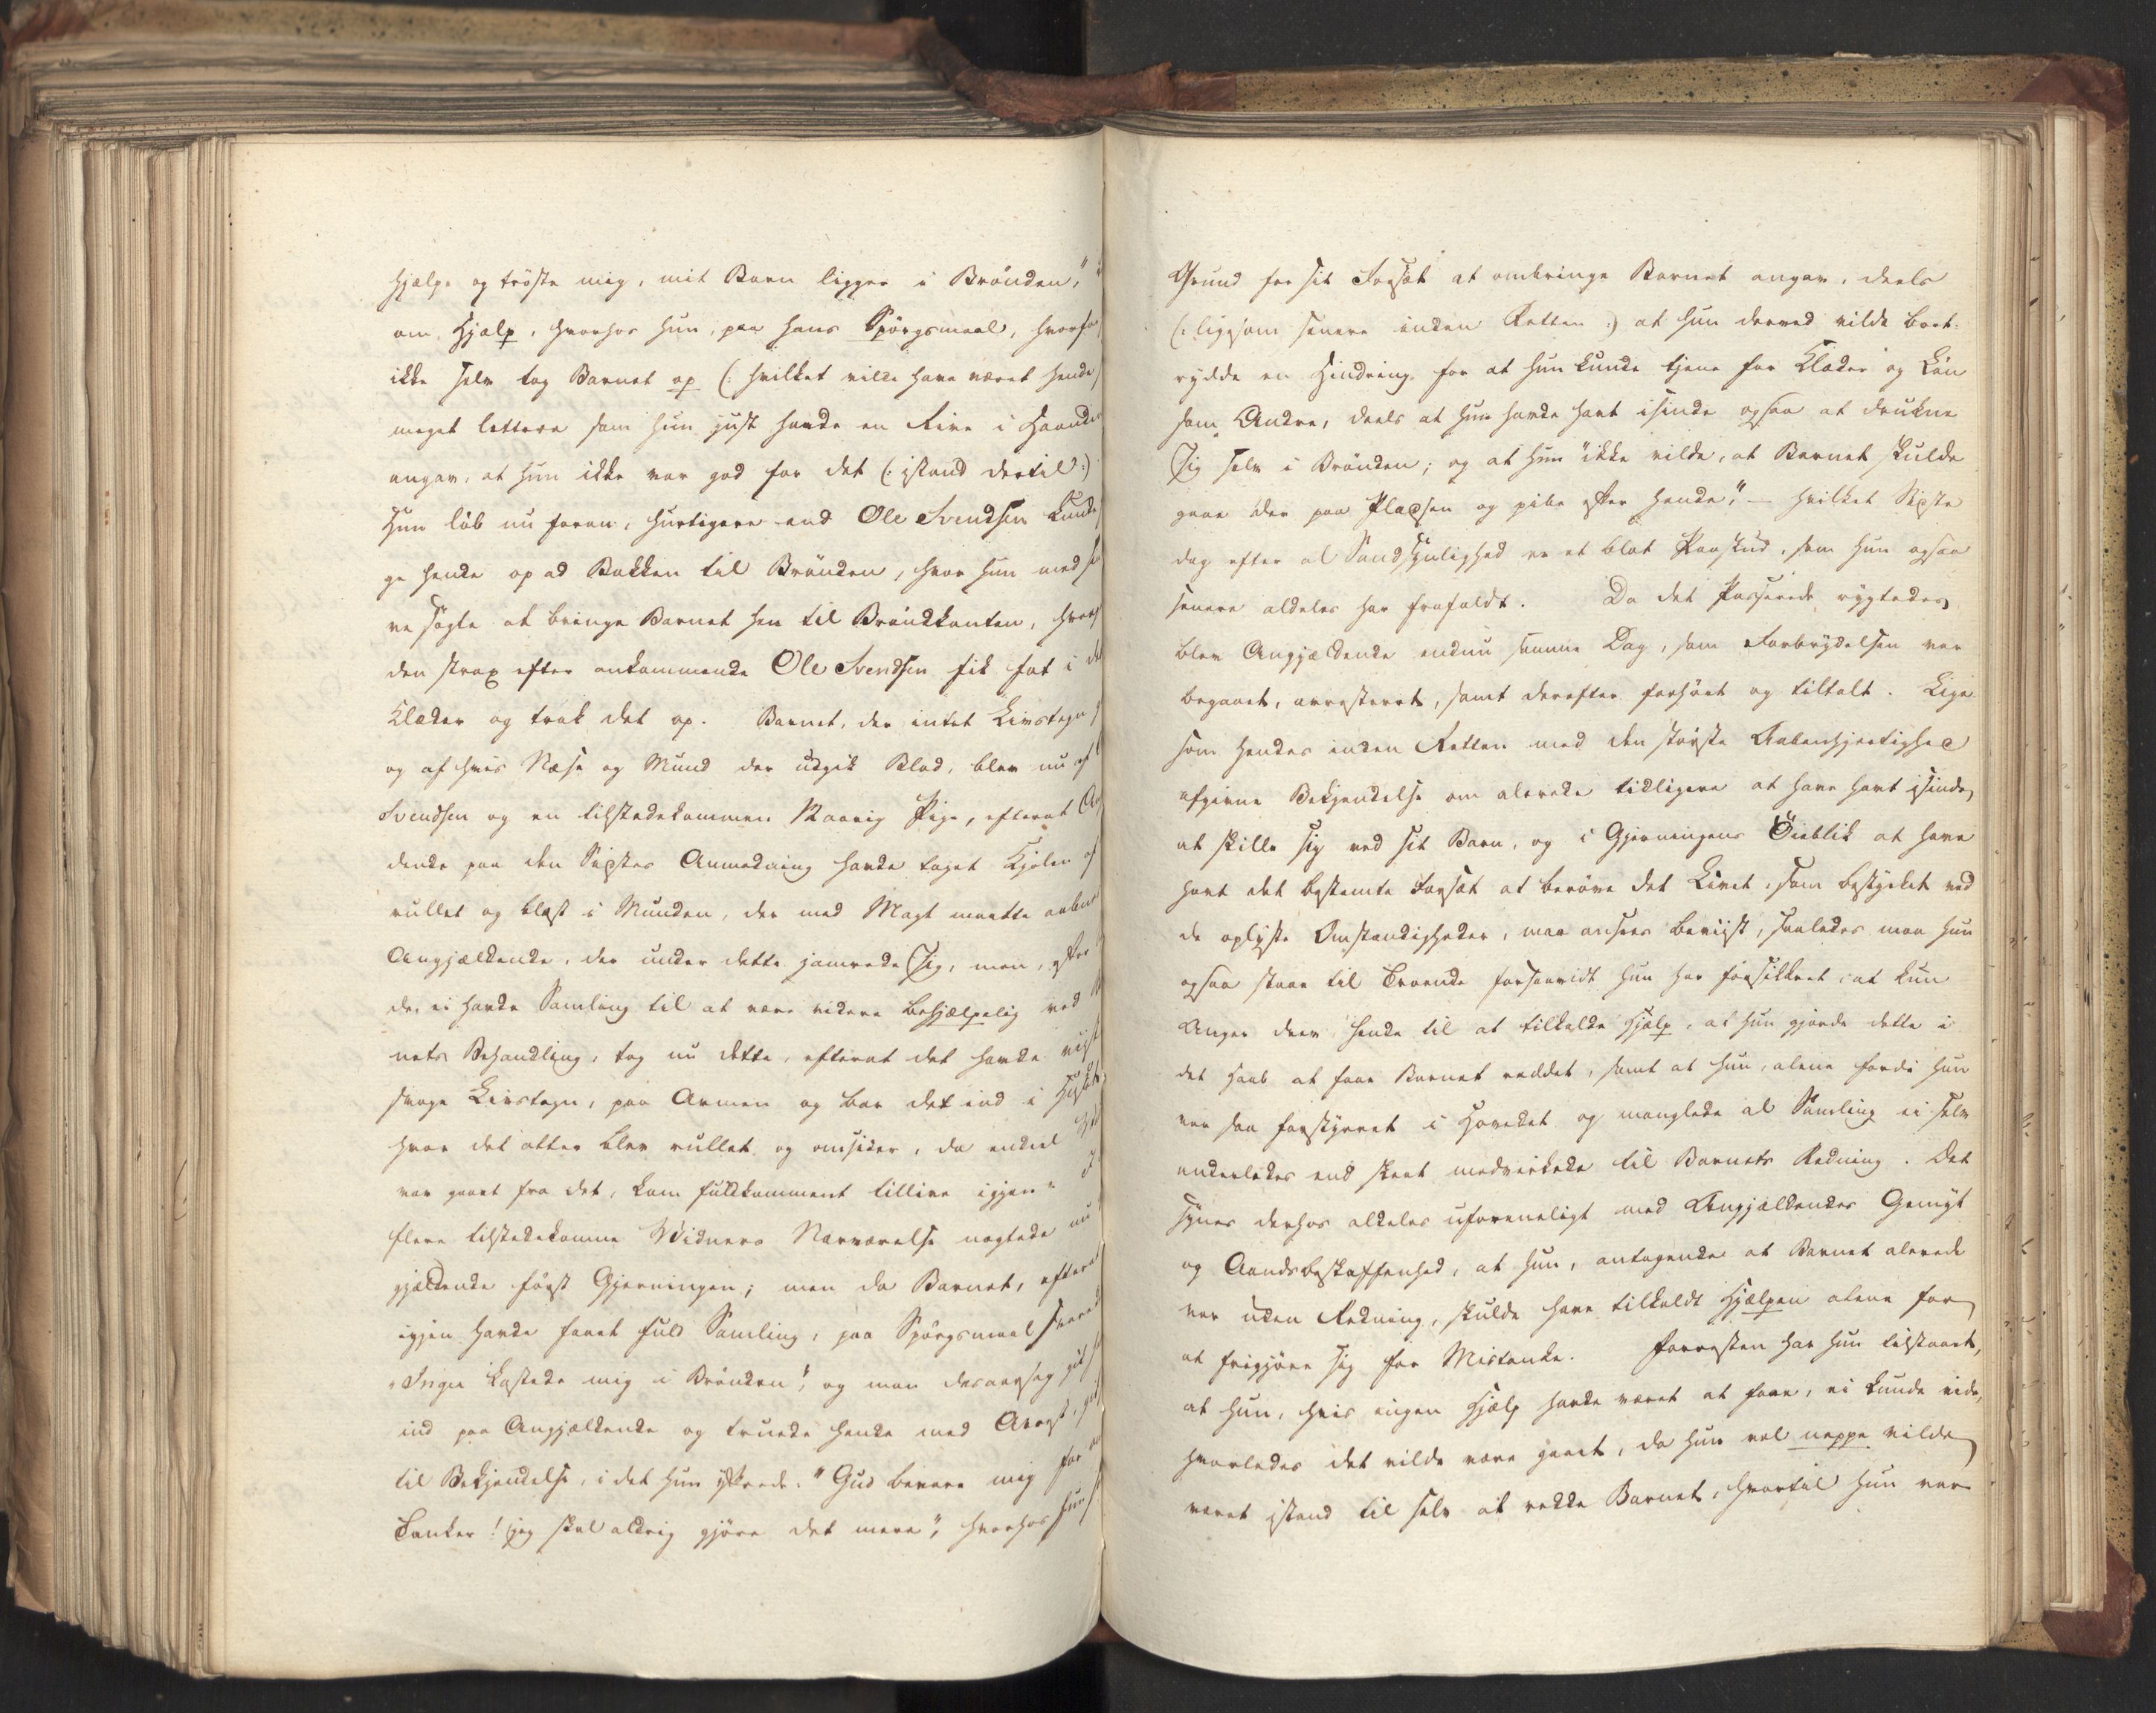 hjælpe og trøste mig, mit Barn ligger i Brønden,"
om Hjælp, hvorhos hun, paa hans Spørgsmaal, hvorfor
ikke selv tog Barnet op (: hvilket vilde have været hende
meget lettere som hun just havde en Rive i Haanden
angav, at hun ikke var god for det (: istand dertil :)
Hun løb nu foran, hurtigere end Ole Svendsen kunde
ge hende op ad Bakken til Brønden, hvor hun med
ve søgte at bringe Barnet hen til Brøndkanten, hvor
den strax efter ankommende Ole Svendsen fik fat i
Klæder og trak det op. Barnet, der intet Livstegn
og af hvis Næse og Mund der udgik Blod, blev nu af
Svendsen og en tilstedekommen Pige, efterat
dende paa den Sidstes Anmodning havde taget Kjolen af
rullet og blæst i Munden, der med Magt maatte aabnes
Angjældende, der under dette jamrede sig, men, efter
der ei havde Samling til at være videre behjælpelig ved
nets Behandling, tog nu dette, efterat det havde viist
svage Livstegn, paa Armen og bar det ind i
hvor det atter blev rullet og omsider, da endeel
var gaaet fra det, kom fuldkomment tillive igjen.
flere tilstedekomne Widners Nærværelse nægtede nu
gjældende først Gjerningen; men da Barnet, efterat
igjen havde faaet fuld Samling, paa Spørgsmaal svarede
"Inger kastede mig i Brønden", og man desaarsag gik
ind paa Angjældende og truede hende med Arrest, gik
til Bekjendelse, i det hun yttrede: "Gud bevare mig for
Tanker! jeg skal aldrig gjøre det mere", hvorhos hun
Grund for sit Forsæt at ombringe Barnet angav, deels
(: ligesom senere inden Retten :) at hun derved vilde bort-
rydde en Hindring for at hun kunde tjene for Klæder og Løn
som Andre, deels at hun havde havt isinde ogsaa at drukne
sig selv i Brønden; og at hun "ikke vilde, at Barnet skulde
gaae der paa Pladsen og pibe efter hende," – hvilket Sidste
dog efter al Sandsynlighed er et blot Paaskud, som hun ogsaa
senere aldeles har frafaldt. Da det Passerede rygtedes
blev Angjældende endnu samme Dag, som Forbrydelsen var
begaaet, arresteret, samt derefter forhørt og tiltalt. Lige
som hendes inden Retten med den største Aabenhjertighed
afgivne Bekjendelse om allerede tidligere at have havt isinde
at skille sig ved sit Barn, og i Gjerningens Öieblik at have
havt det bestemte Forsæt at berøve det Livet, som bestyrket ved
de oplyste Omstændigheder, maa ansees beviist, saaledes maa hun
ogsaa staae til Troende forsaavidt hun har forsikkret, at kun
Anger drev hende til at tilkalde Hjælp, at hun gjorde dette i
det Haab at faae Barnet reddet, samt at hun, alene fordi hun
var saa forstyrret i Hovedet og manglede al Samling ei selv
anderledes end skeet medvirkede til Barnets Redning. Det
synes derhos aldeles uforeneligt med Angjældendes Gemyt
og Aandsbeskaffenhed, at hun, antagende at Barnet allerede
var uden Redning, skulde have tilkaldt Hjælpen alene for
at frigjøre sig for Mistanke. Forresten har hun tilstaaet,
at hun, hvis ingen Hjælp havde været at faae, ei kunde vide,
hvorledes det vilde være gaaet, da hun vel neppe vilde
været istand til selv at redde Barnet, hvortil hun var